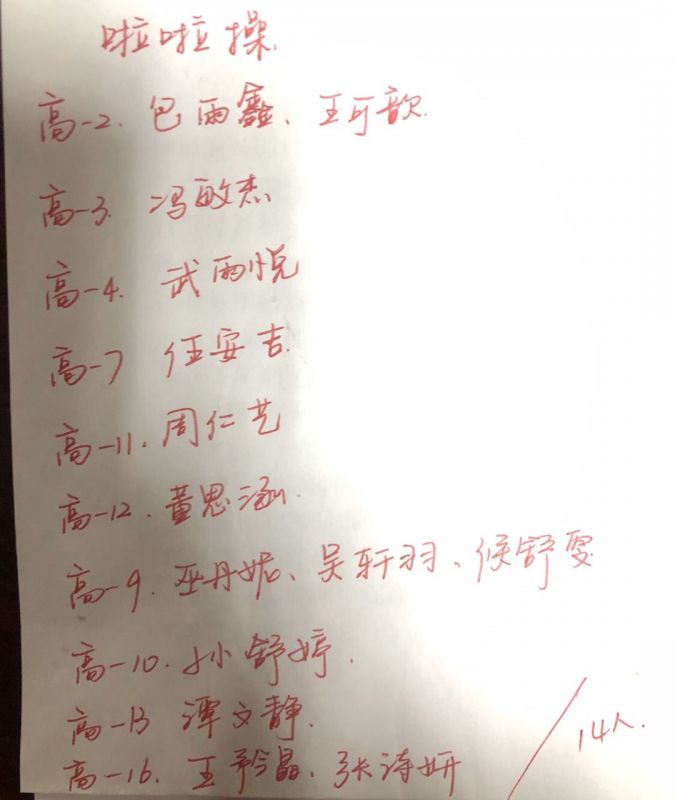 啦啦操.
高一2. 包雨鑫、王可歆.
高一3. 冯敏杰
高一4. 武雨悦
高一7 任安吉.
高一11. 周仁艺
高一12. 董思涵.
高一9. 巫丹妮、吴轩羽、侯舒雯
高一10. 孙舒婷.
高一13 谭文静.
高一16. 王矜晶、张诗妍
14人.